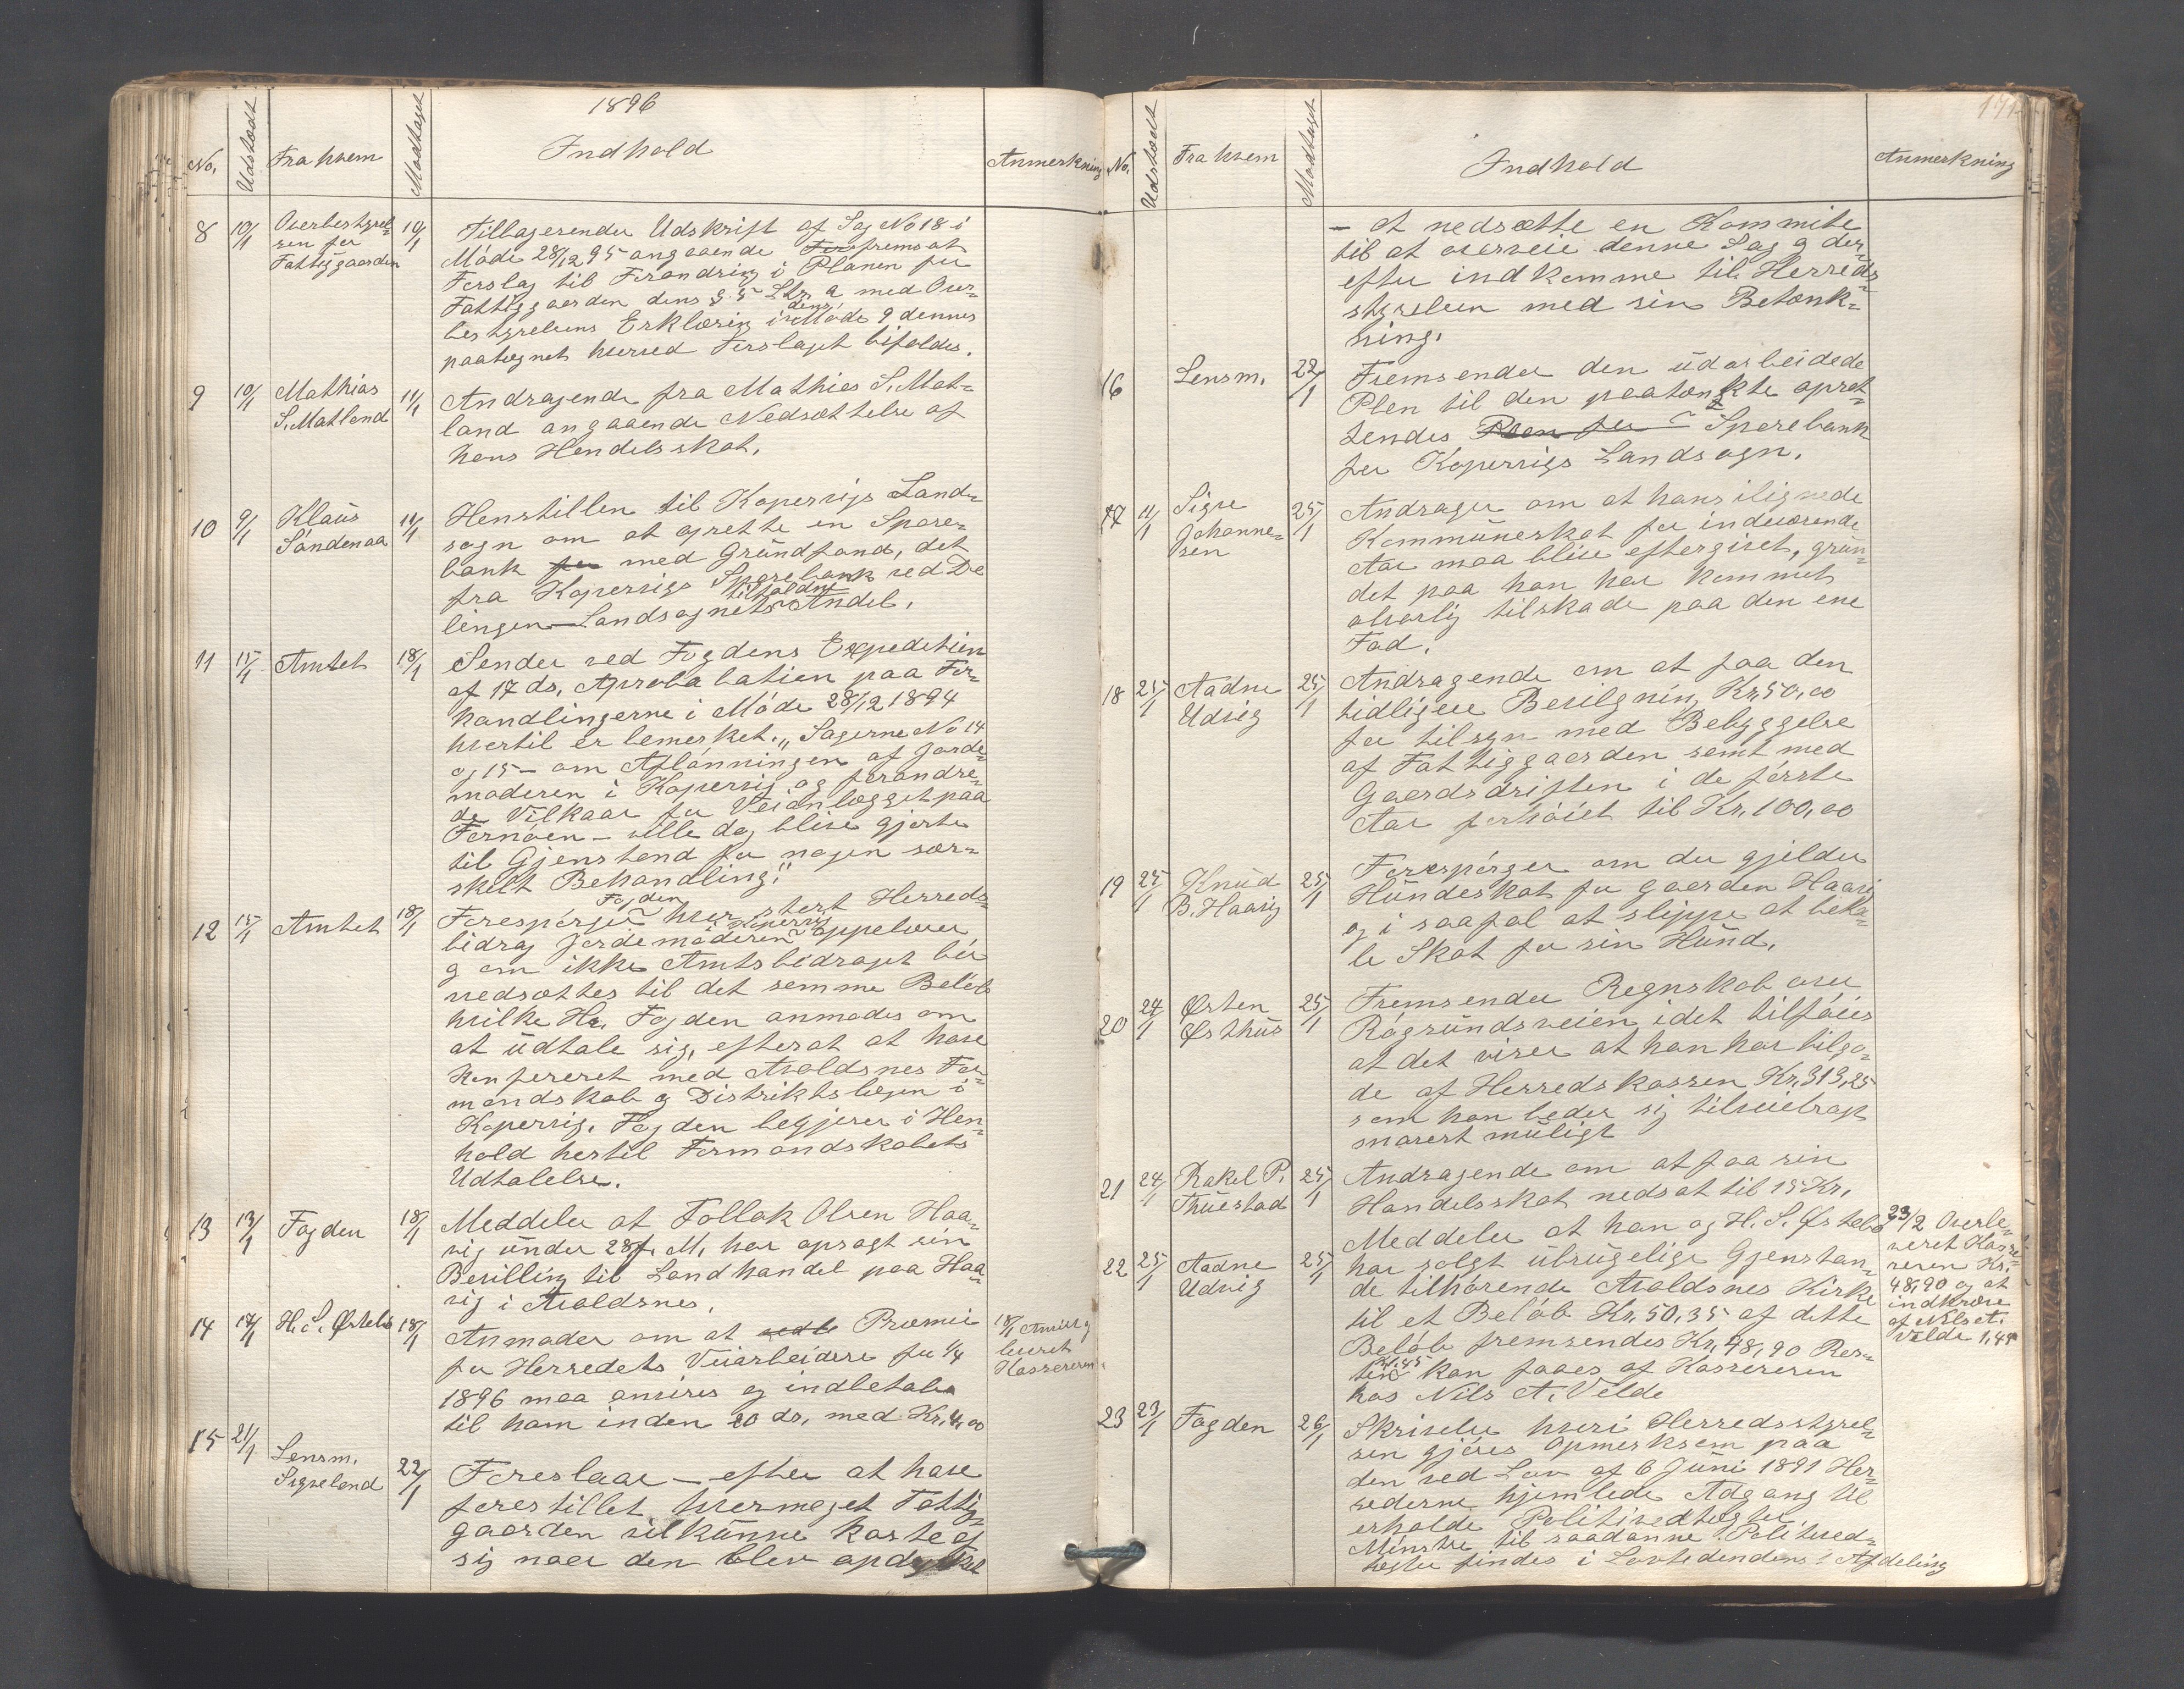 1896
No. Udstædt Fra hvem Modtaget Indhold Anmerkning
8 10/1 Overbestyrel- 10/1 Tilbagesender Udskrift af Sag No 18 i
sen for Møde 28/12 95 angaaende fremsat
Fattiggaarden Forslag til Forandring i Planen for
Fattiggaarden dens § 5 Ltr. a med Over-
bestyrelsens Erklæring i dens Møde 9 dennes
paategnet hvorved Forslaget bifaldes.
9 10/1 Mathias 11/1 Andragende fra Mathias S. Mat-
S. Matland land angaaende Nedsættelse af
hans Handelsskat.
10 9/1 Klaus 11/1 Henstillen til Kopervigs Land-
Søndenaa sogn om at oprette en Spare-
bank for med Grundfond, det
fra Kopervigs Sparebank ved De
lingen Landsognets tilfaldne Andel.
11 15/1 Amtet 18/1 Sender ved Fogdens Expedition
af 17 ds. Aprobabation paa For-
handlingerne i Møde 28/12 1894
hvortil er bemerket. „Sagerne No 14
og 15 - om Aflønningen af Jorde-
moderen i Kopervig og forandre-
de Vilkaar for Veianlægget paa
Fornøen - ville dog blive gjorte
til Gjenstand for nogen sær-
skilt Behandling."
12 15/1 Amtet 18/1 Forespørger Fogden hvor stort Herreds-
bidrag Jordemoderen Kopervig oppebærer
og om ikke Amtsbidraget bør
nedsættes til det samme Beløb
hvilke Hr. Fogden anmodes om
at udtale sig, efterat at have
konfereret med Avaldsnes For-
mandskab og Distriktslægen i
Kopervig. Fogden begjerer i Hen-
hold hertil Formandskabets
Udtalelse.
13 13/1 Fogden 18/1 Meddeler at Tollak Olsen Haa-
vig under 28 f. M. har opsagt sin
Bevilling til Landhandel paa Haa-
vig i Avaldsnes.
14 17/1 H. S. Østebø 18/1 Anmoder om at Præmie 18/1 Anvist og
for Herredets Veiarbeidere for 1/4 leveret
1896 maa anvises og indbetales Kassereren
til ham inden 20 ds. med Kr. 4,00
15 21/1 Lensm. 22/1 Foreslaar - efter at have
Sigveland forestillet hvormeget Fattig-
gaarden vil kunne kaste af
sig naar den blev opdyrket
171
No. Udstædt Fra hvem Modtaget Indhold Anmerkning
- at nedsætte en Kommite
til at overveie denne Sag og der-
efter indkomme til Herreds-
styrelsen med sin Betænk-
ning.
16 Lensm. 22/1 Fremsender den udarbeidede
Plan til den paatænkte opret-
tendes Plan for Sparebank
for Kopervigs Landsogn.
17 11/1 Sigve 25/1 Andrager om at hans ilignede
Johanne- Kommuneskat for indeværende
sen Aar maa blive eftergivet, grun-
det paa han har kommet
alvorlig tilskade paa den ene
Fod.
18 25/1 Aadne 25/1 Andragende om at faa den
Udvig tidligere Bevilgning Kr. 50,00
for tilsyn med Bebyggelse
af Fattiggaarden samt med
Gaardsdriften i de første
Aar forhøiet til Kr. 100,00
19 25/1 Knud 25/1 Forespørger om der gjelder
B. Haavig Hundeskat for gaarden Haavig
og i saafal at slippe at beta-
le Skat for sin Hund.
20 24/1 Østen 25/1 Fremsender Regnskab over
Østhus Røgsundsveien, idet tilføies
at det viser at han har tilgo-
de af Herredskassen Kr. 313,25
som han beder sig tilveiebragt
snarest muligt
21 24/1 Rakel P. 25/1 Andragende om at faa sin
Thuestad Handelsskat nedsat til 15 Kr.
22 25/1 Aadne 25/1 Meddeler at han og H. S. Østebø 23/2 Overle-
Udvig har solgt ubrugelige Gjenstan- veret Kasse-
de tilhørende Avaldsnes Kirke reren Kr.
til et Beløb Kr. 50,35 af dette 48,90 og at
Beløb fremsendes Kr. 48,90 Res- indkræve
ten Kr. 1,45 kan faaes af Kassereren af Nils A.
hos Nils A. Velde Velde 1,45
23 23/1 Fogden 26/1 Skrivelse hvori Herredsstyrel-
sen gjøres opmerksom paa
den ved Lov af 6 Juni 1891 Her-
rederne hjemlede Adgang til
erholde Politivedtægter.
Mønstre til saadanne Politived-
tægter findes i Lovtidendens 1 Afdeling